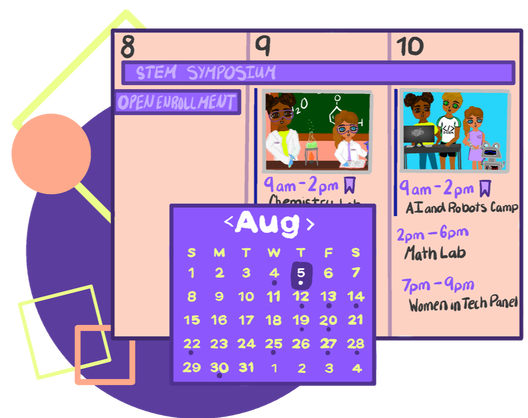 8 9 10
STEM SYMPOSIUM
OPEN ENROLLMENT
9am-2pm
Chemistry Lab
9am-2pm
AI and Robots Camp
2pm-6pm
Math Lab
7pm-9pm
Women in Tech Panel
<Aug>
S M T W T F S
1 2 3 4 5 6 7
8 9 10 11 12 13 14
15 16 17 18 19 20 21
22 23 24 25 26 27 28
29 30 31 1 2 3 4